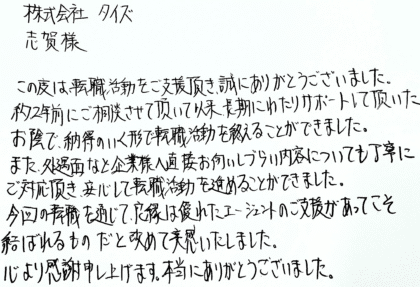 株式会社 タイズ
志賀様
この度は、転職活動をご支援頂き、誠にありがとうございました。
約2年前にご相談させて頂いて以来、長期にわたりサポートして頂いた
お陰で、納得のいく形で転職活動を終えることができました。
また、処遇面など企業様へ直接お伺いしづらい内容についても丁寧に
ご対応頂き、安心して転職活動を進めることができました。
今回の転職を通じて、良縁は優れたエージェントのご支援があってこそ
結ばれるものだと改めて実感いたしました。
心より感謝申し上げます。本当にありがとうございました。